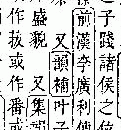 子踐諸侯之
前漢李廣利傳
又韻補叶子
盛貌 又集
作拔或作番或